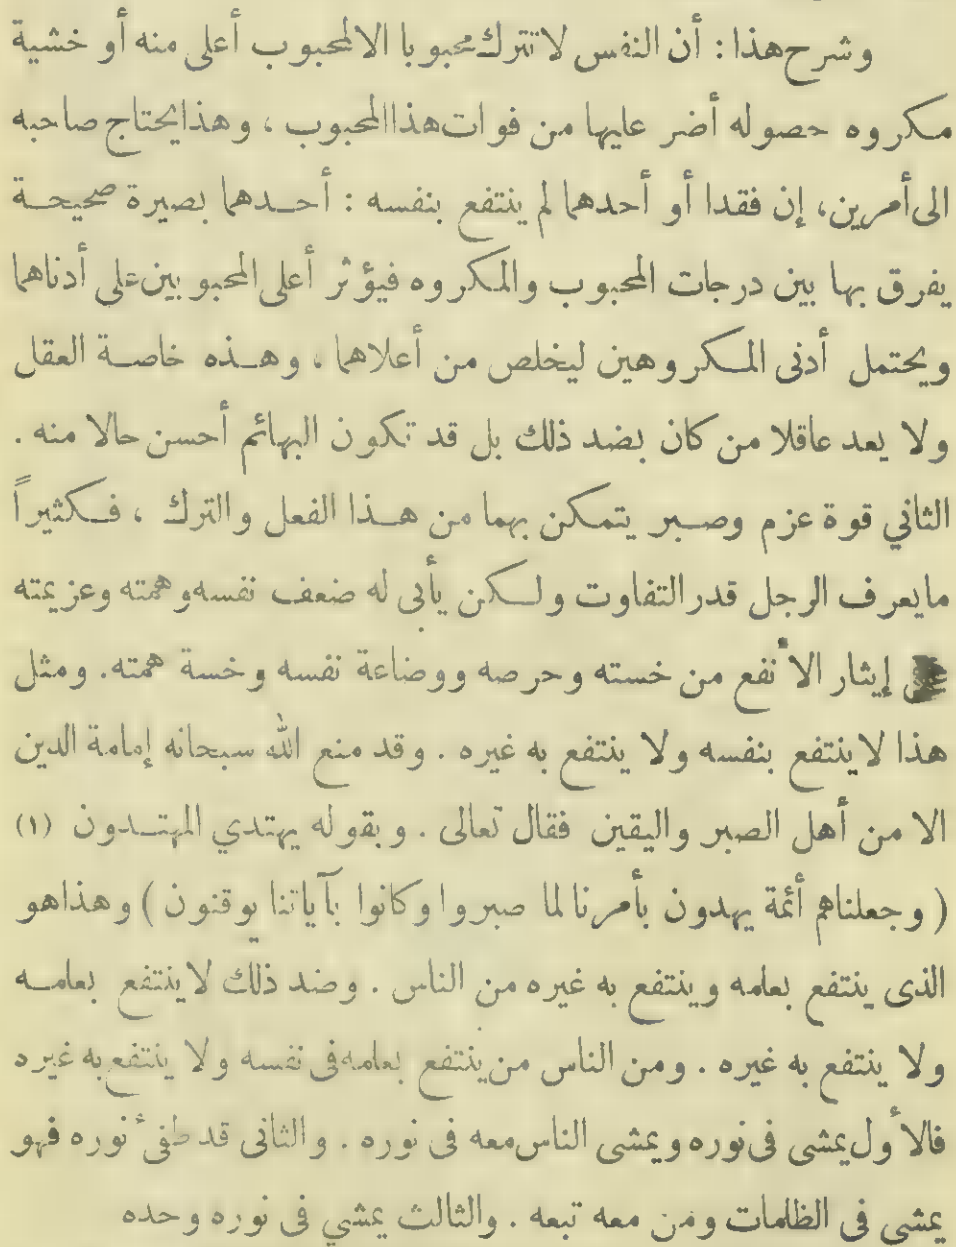 وشرح هذا : أن النفس لا تترك محبوبا الا لمحبوب أعلى منه أو خشية
مكروه حصوله أضر عليها من فوات هذا المحبوب ، وهذا يحتاج صاحبه
الى أمرين، إن فقدا أو أحدهما لم ينتفع بنفسه : أحدهما بصيرة صحيحة
يفرق بها بين درجات المحبوب والمكروه فيؤثر أعلى المحبوبين على أدناهما
ويحتمل أدنى المكروهين ليخلص من أعلاهما ، وهذه خاصة العقل
ولا يعد عاقلا من كان بضد ذلك بل قد تكون البهائم أحسن حالا منه .
الثاني قوة عزم وصبر يتمكن بهما من هذا الفعل والترك ، فكثيراً
ما يعرف الرجل قدر التفاوت ولكن يأبى له ضعف نفسه وهمته وعزيمته
إيثار الأنفع من خسته وحرصه ووضاعة نفسه وخسة همته. ومثل
هذا لا ينتفع بنفسه ولا ينتفع به غيره . وقد منع الله سبحانه إمامة الدين
الا من أهل الصبر واليقين فقال تعالى . وبقوله يهتدي المهتدون (١)
( وجعلناهم أئمة يهدون بأمرنا لما صبروا وكانوا بآياتنا يوقنون ) وهذا هو
الذى ينتفع بعلمه وينتفع به غيره من الناس . وضد ذلك لا ينتفع بعلمه
ولا ينتفع به غيره . ومن الناس من ينتفع بعلمه فى نفسه ولا ينتفع به غيره
فالأول يمشى فى نوره ويمشى الناس معه فى نوره . والثانى قد طفئ نوره فهو
يمشى فى الظلمات ومن معه تبعه . والثالث يمشي فى نوره وحده